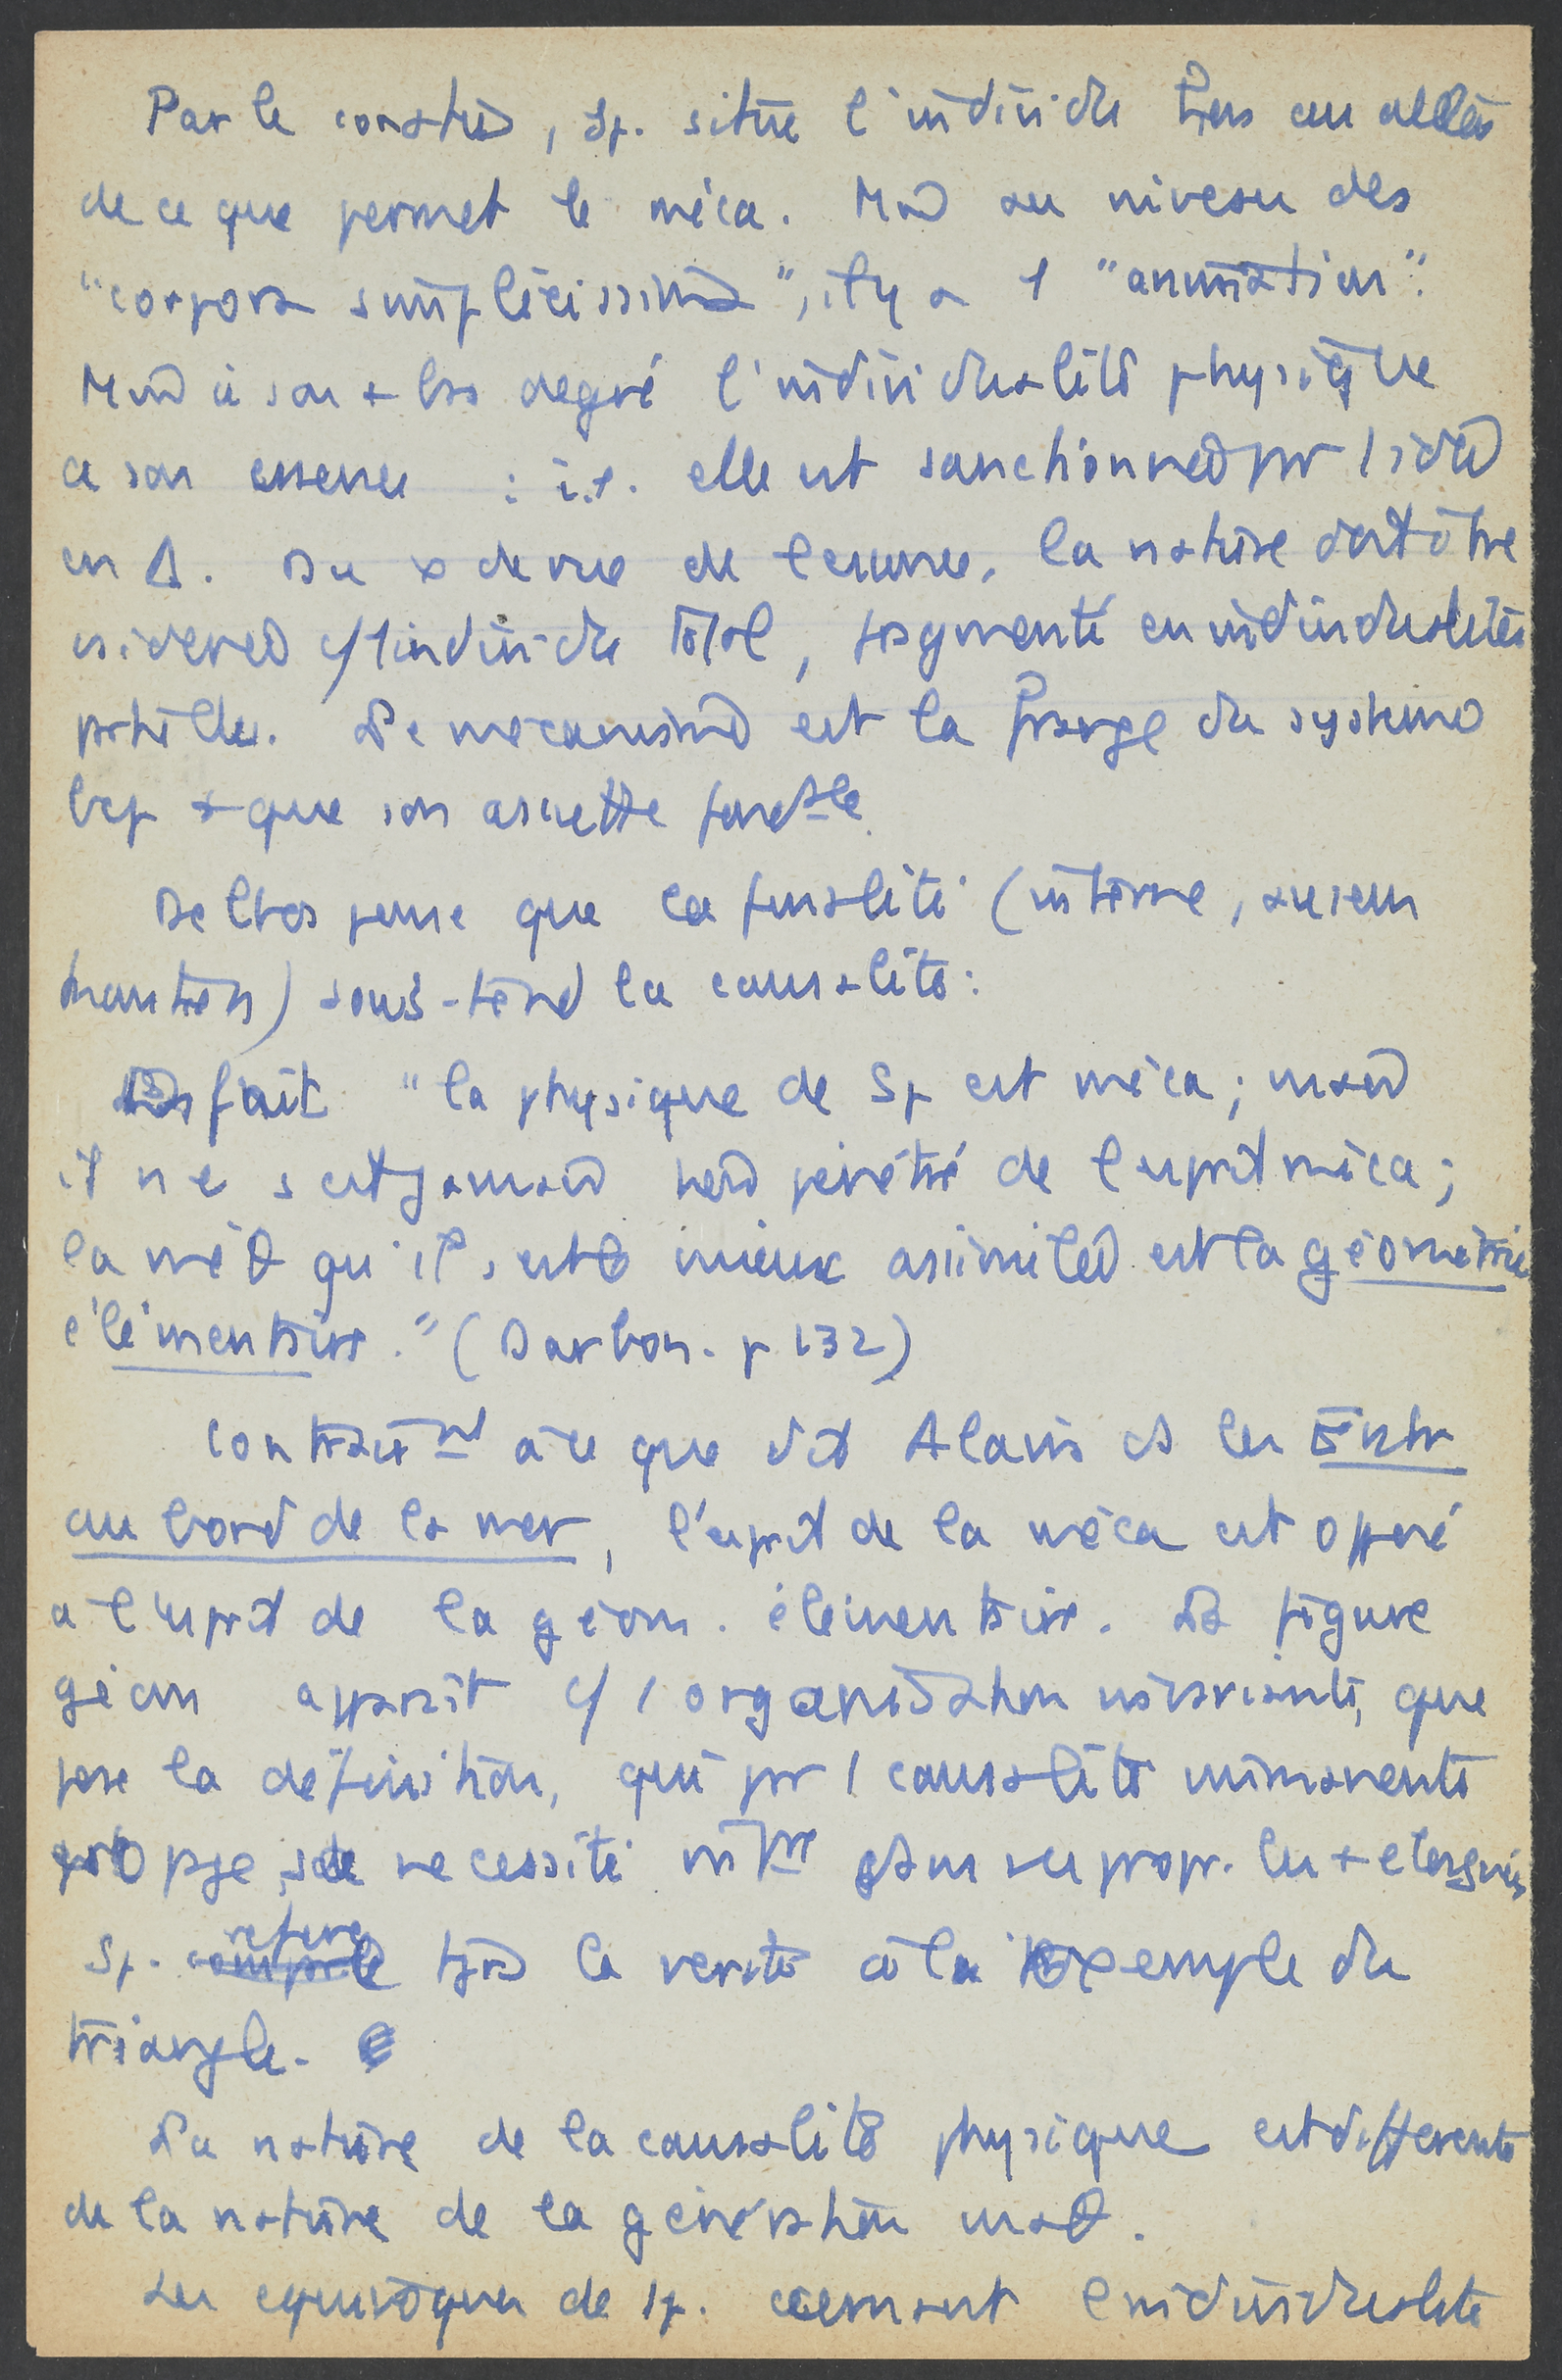 Par le contre, Sp. situe l'individu bien au delà
de ce que permet le méca. Md au niveau des
"corpora simplicissima", il y a 1 "animation".
Md à son + bas degré l'individualité physique
a son essence : i.e. elle est sanctionnée pr 1 idée
en Δ. Du x de vue de l'essence, la nature doit être
sidérée c/ 1 individu total, fragmenté en individualités
partielles. Le mécanisme est la frange du système
bcp + que son assiette fondale.
Delbos pense que la finalité (interne, au sens
kantien) sous-tend la causalité :
En fait "la physique de Sp est méca ; mais
il ne s'est jamais pénétré de l'esprit méca ;
la méθ qu'il s'est le mieux assimilée est la géométrie
élémentaire." (Darbon. p 132)
Contrairemt à ce que dit Alain ds les Entr
au bord de la mer, l'esprit de la méca est opposé
à l'esprit de la géom. élémentaire. La figure
géom apparaît c/ 1 organisation invariante, que
pose la définition, qui pr 1 causalité immanente
propage sa nécessité interne jusqu'aux propr. les + éloignés
Sp. réfère tjrs la vérité à l'exemple du
triangle.
La nature de la causalité physique est différente
de la nature de la génération maθ.
Les équivoques de Sp. cernant l'individualité